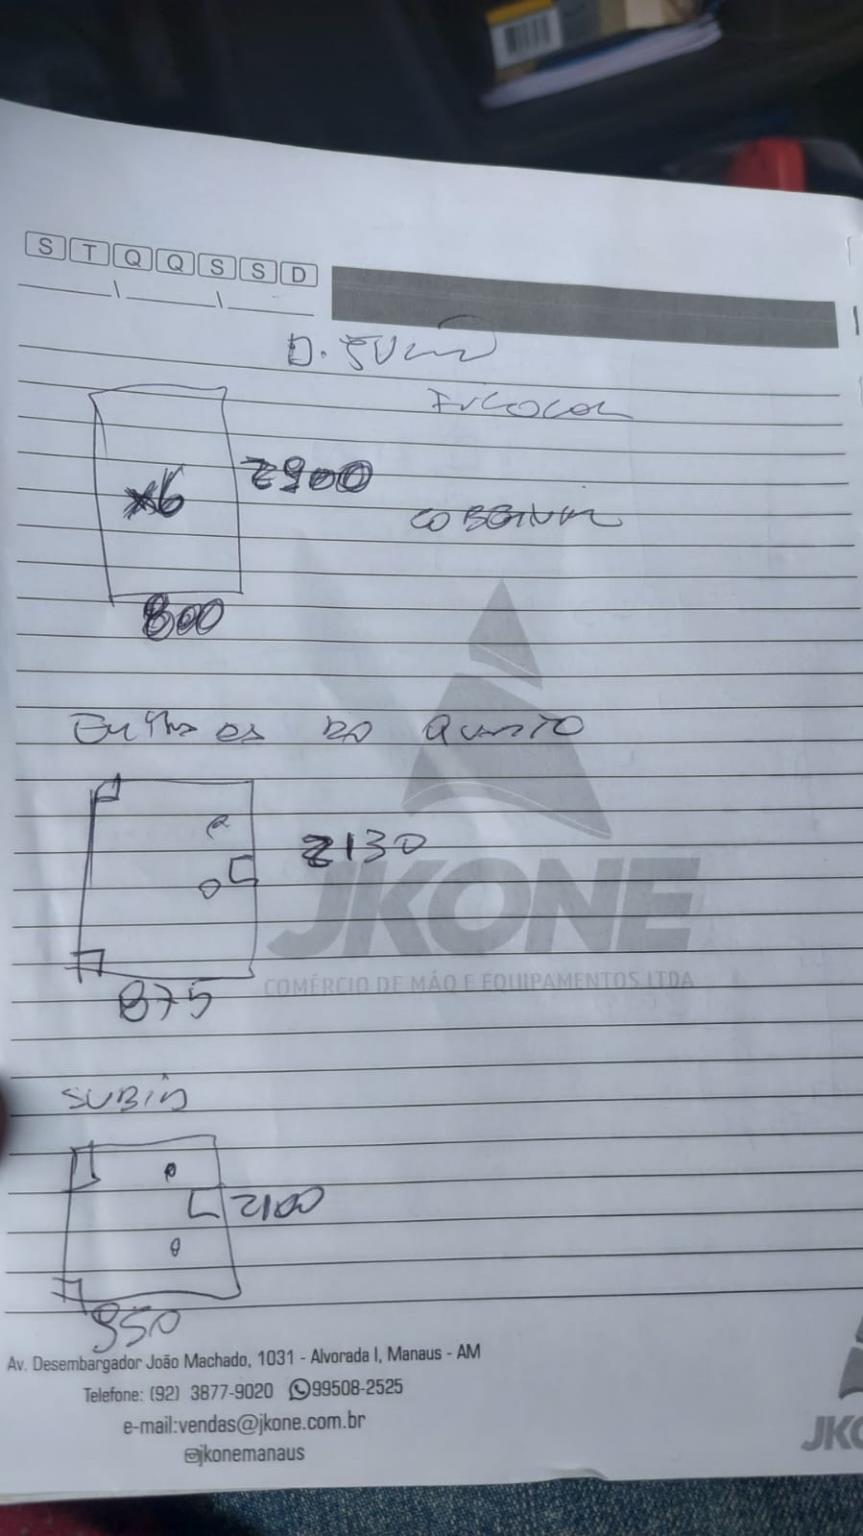 S T Q Q S S D
D.
x6
2900
INCOCOR
COBERTURA
800
DO QUARTO
2130
875
JKONE
COMÉRCIO DE MÁQ E EQUIPAMENTOS LTDA
2100
950
Av. Desembargador João Machado, 1031 - Alvorada I, Manaus - AM
Telefone: (92) 3877-9020 99508-2525
e-mail:vendas@jkone.com.br
@jkonemanaus